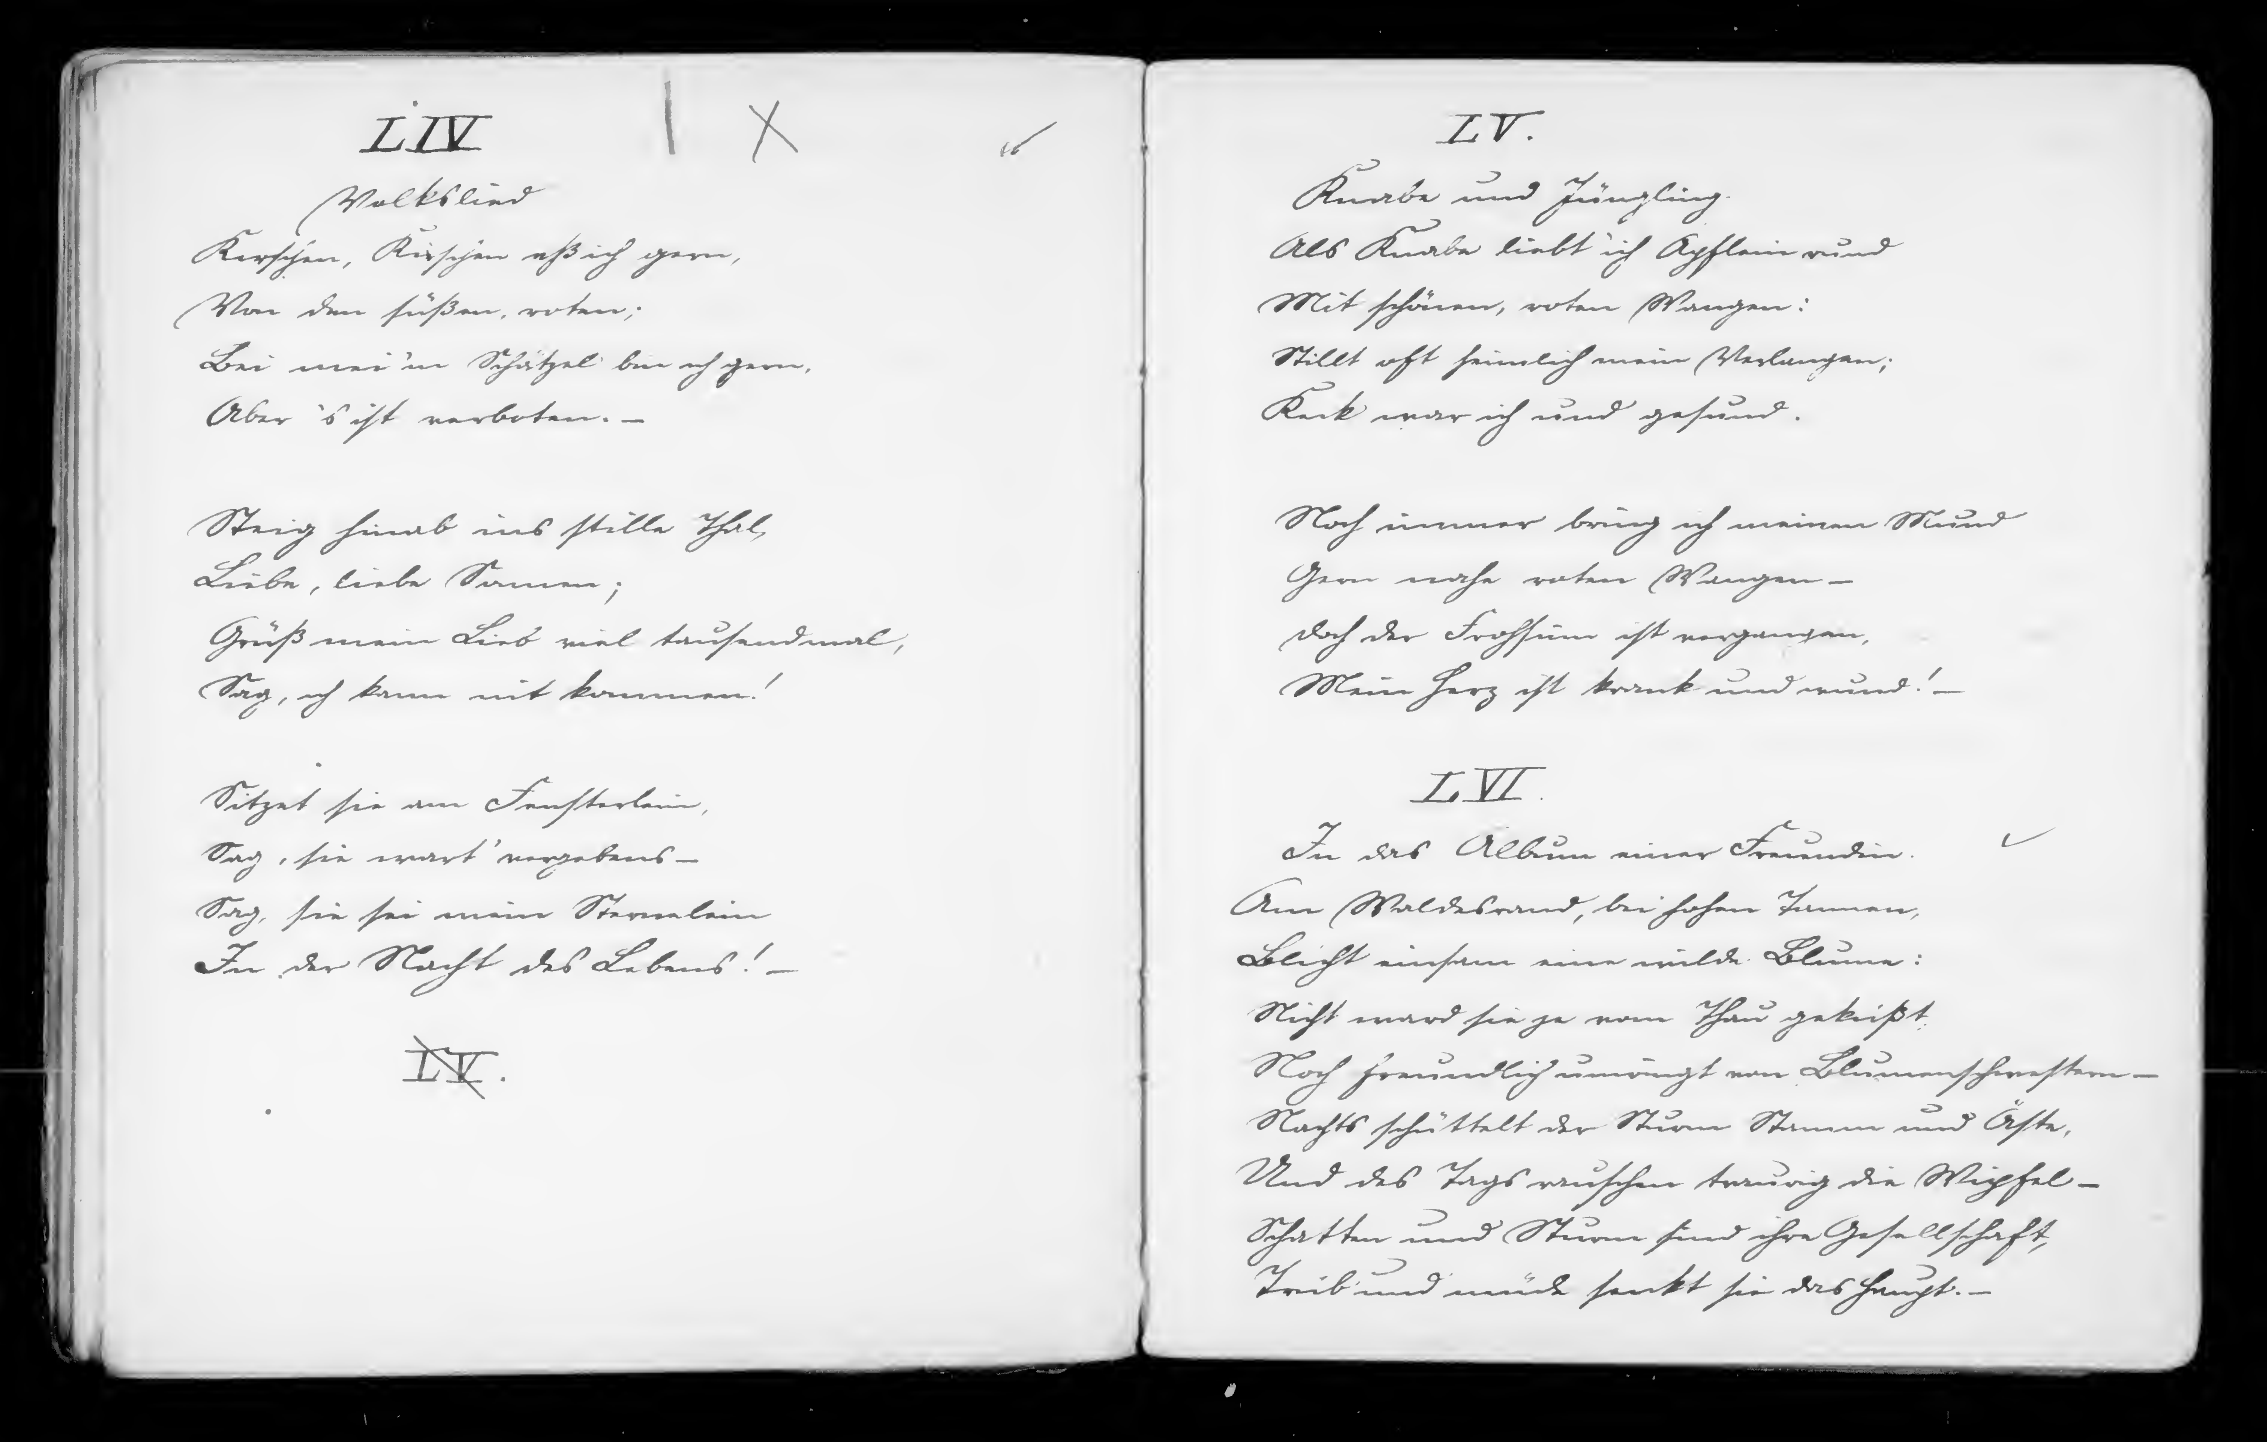 LIV
Volkslied
Kirschen, Kirschen eß ich gern,
Von den süßen, roten;
Bei mei'm Schätzel bin ich gern,
Aber 's ist verboten. –
Steig hinab ins stille Thal,
Liebe, liebe Sonnen;
Grüß mein Lieb viel tausendmal,
Sag, ich kann nit kommen!
Sitzet sie am Fensterlein,
Sag, sie wart' vergebens –
Sag, sie sei mein Sternelein
In der Nacht des Lebens! –
LV.
LV.
Knabe und Jüngling.
Als Knabe liebt' ich Äpflein rund
Mit schönen, roten Wangen:
Stillt oft heimlich mein Verlangen;
Keck war ich und gesund.
Noch immer bring ich meinen Mund
Gern nahe roten Wangen –
Doch der Frohsinn ist vergangen,
Mein Herz ist krank und wund! –
LVI.
In das Album einer Freundin.
Am Waldesrand, bei hohen Tannen,
Blüht einsam eine wilde Blume:
Nicht ward sie je vom Thau geküßt,
Noch freundlich umringt von Blumenschwestern –
Nachts schüttelt der Sturm Stamm und Äste,
Und des Tags rauschen traurig die Wipfel –
Schatten und Sturm sind ihre Gesellschaft,
Trüb und müde senkt sie das Haupt. –